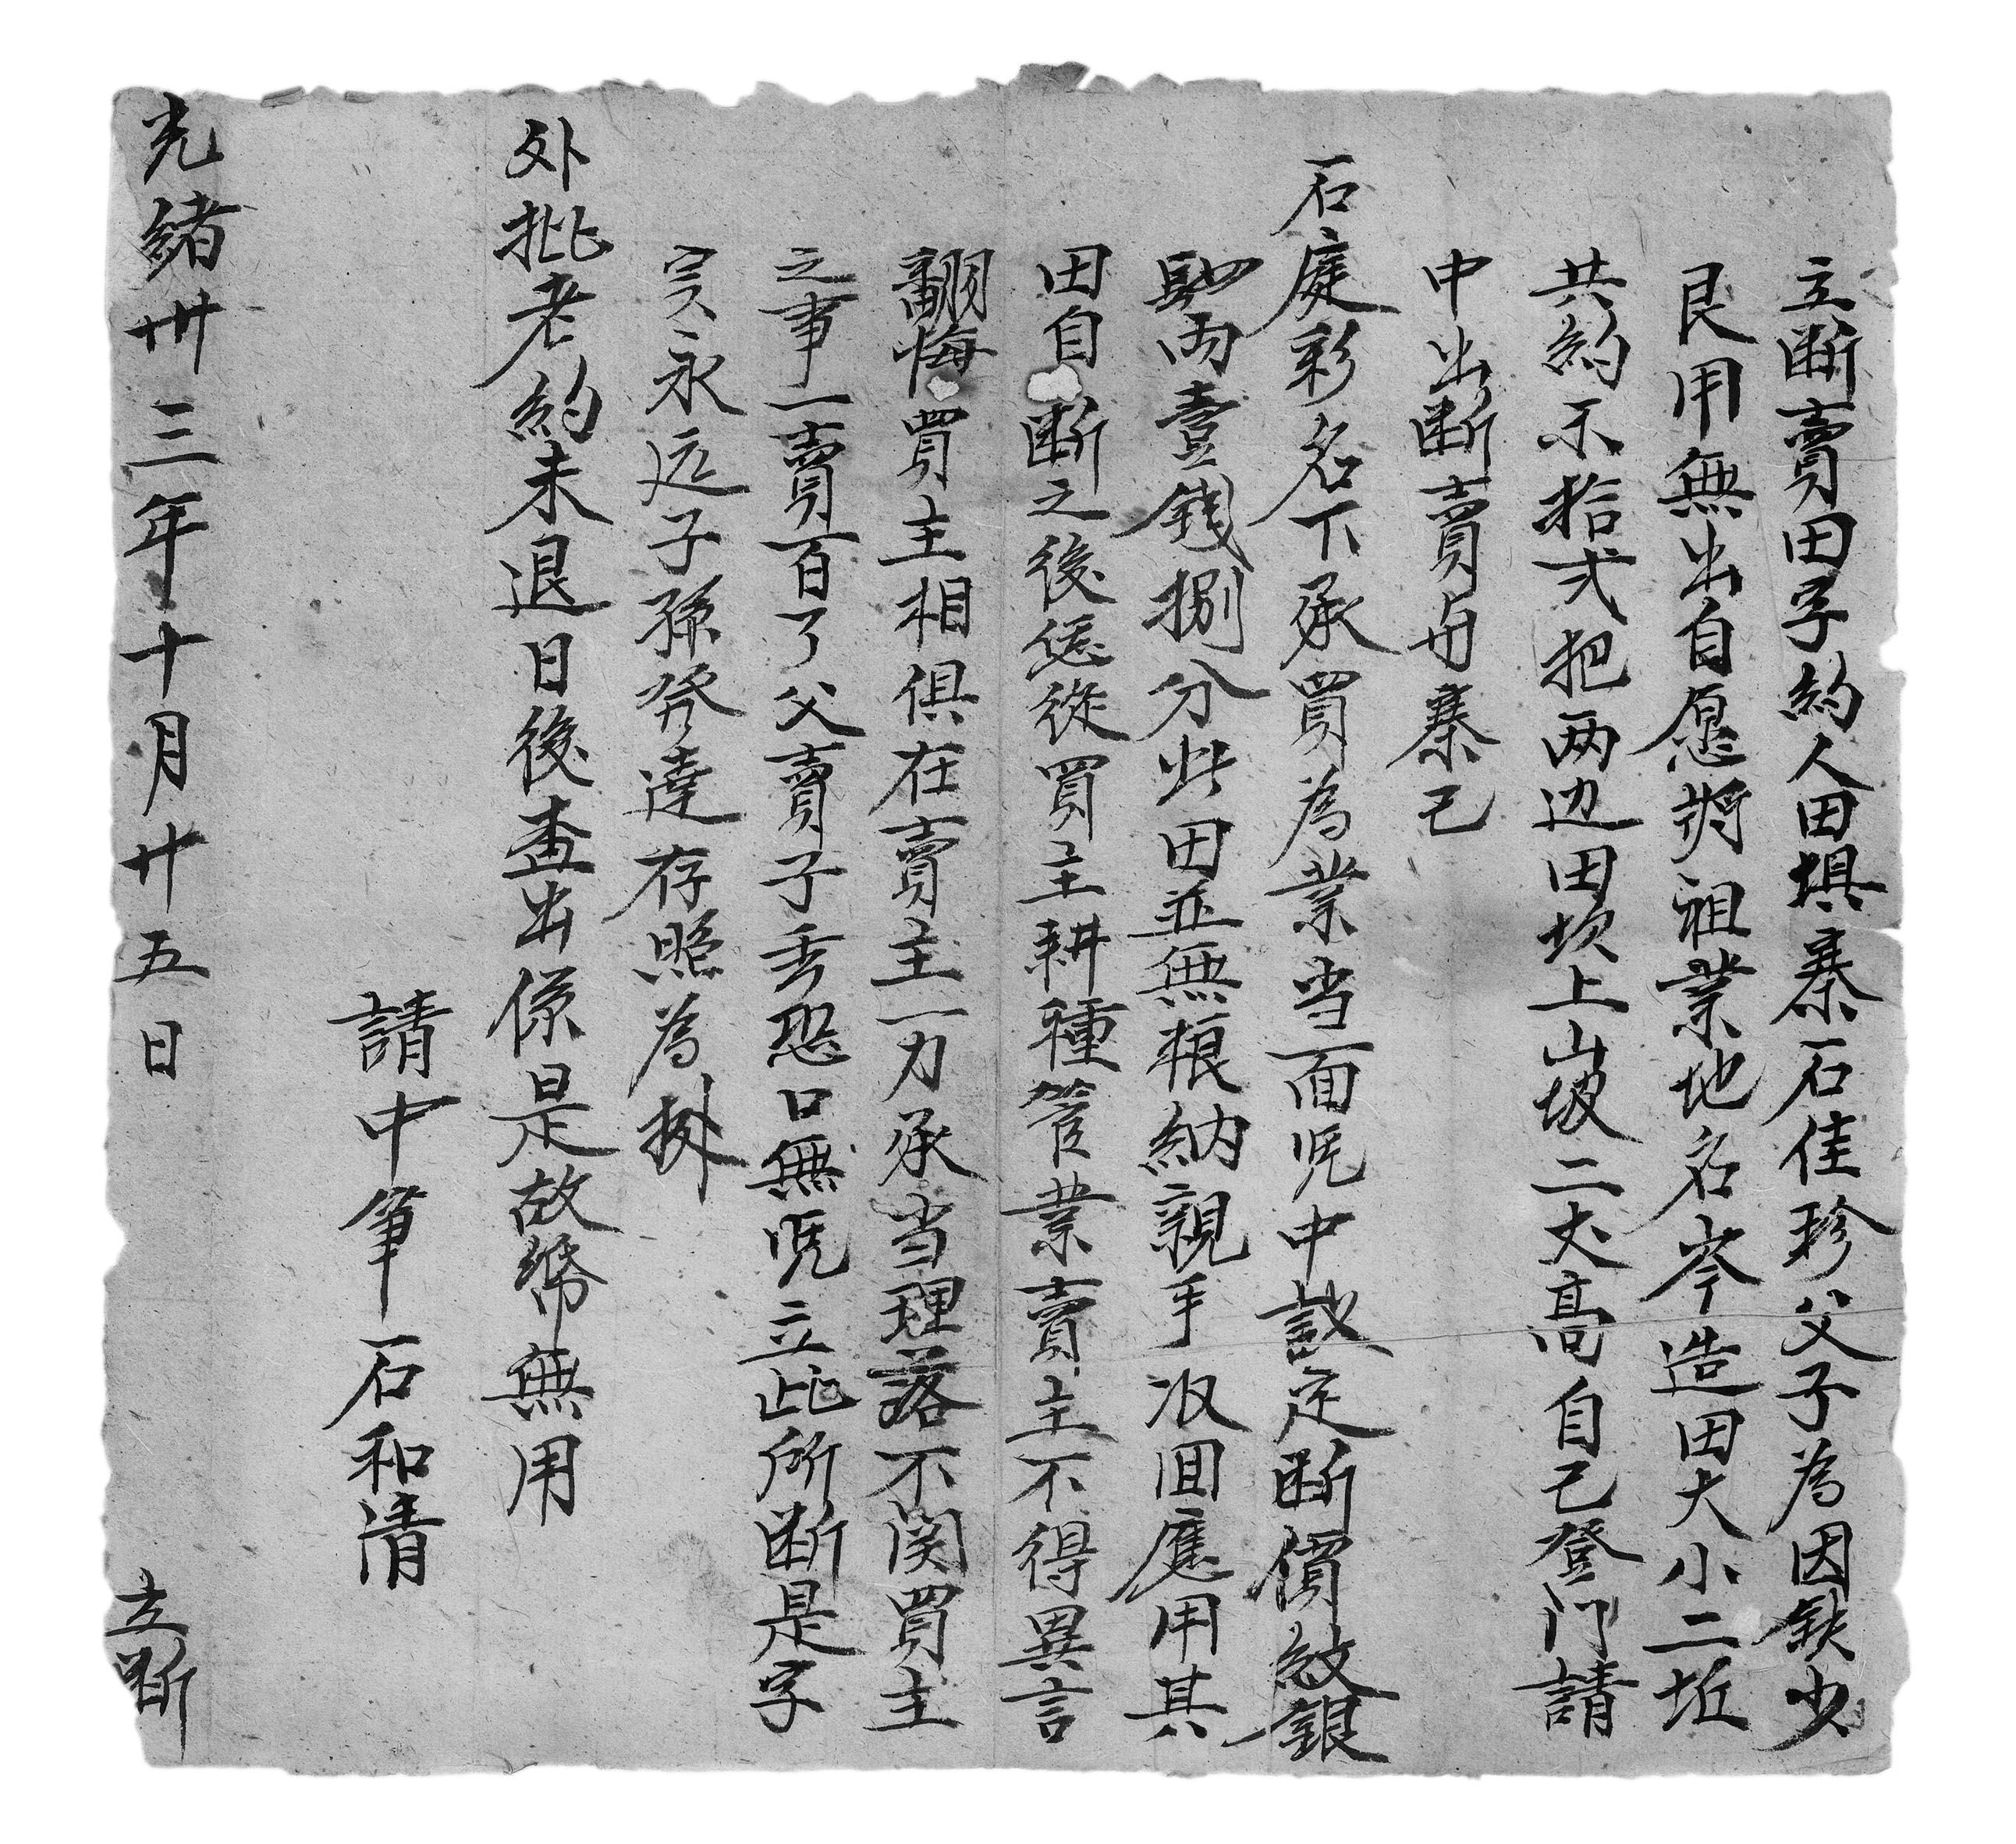 立断賣田字約人田坝寨石佳珍父子為因缺少
艮用無出自愿將祖業地名岑造田大小二坵
共約禾拾弍把两边田坎上山坡二丈高自己登门請
中出断賣与寨己
石庭彩名下承買為業当面凭中議定断價紋銀
肆両壹錢捌分此田並無粮納親手収囬應用其
田自断之後恁從買主耕種管業賣主不得異言
翻悔買主相俱在賣主一力承当理落不関買主
之事一賣百了父賣子丢恐口無凭立此所断是字
寔永远子孫発達存照為㨿
外批老約未退日後查出係是故𢄼無用
請中筆石和清
光緒卅三年十月廿五日 立断